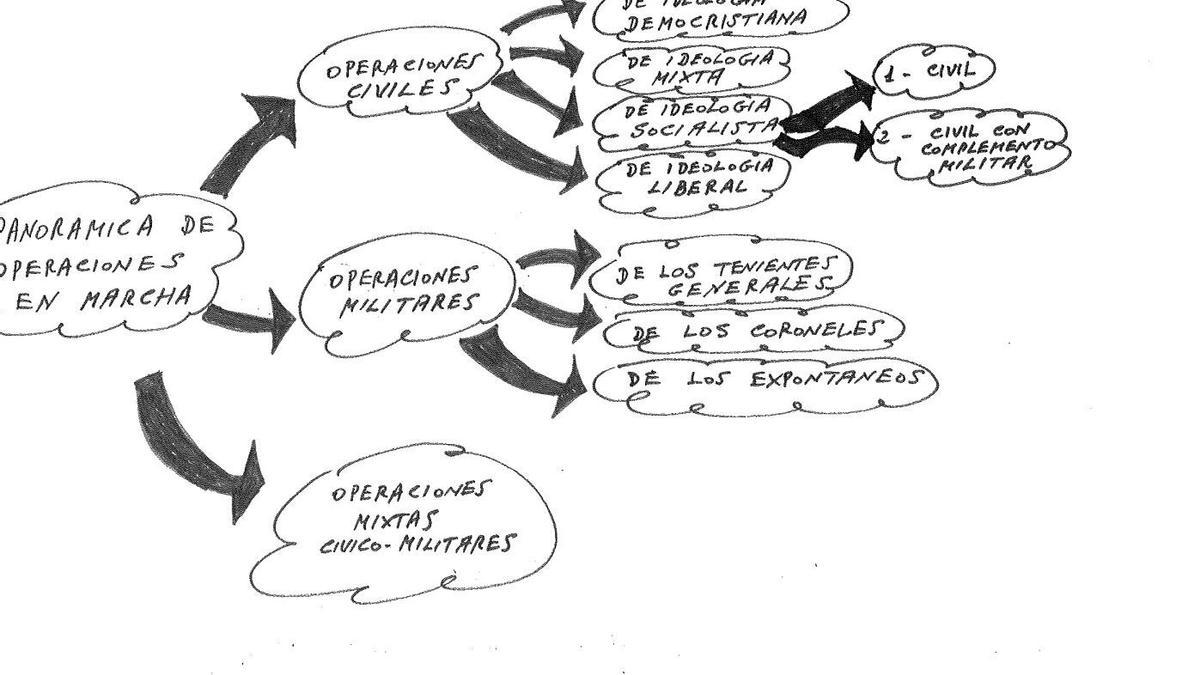 PANORAMICA DE
OPERACIONES
EN MARCHA
OPERACIONES
CIVILES
DE IDEOLOGIA
DEMOCRISTIANA
DE IDEOLOGIA
MIXTA
DE IDEOLOGIA
SOCIALISTA
1 - CIVIL
2 - CIVIL CON
COMPLEMENTO
MILITAR
DE IDEOLOGIA
LIBERAL
OPERACIONES
MILITARES
DE LOS TENIENTES
GENERALES
DE LOS CORONELES
DE LOS EXPONTANEOS
OPERACIONES
MIXTAS
CIVICO-MILITARES